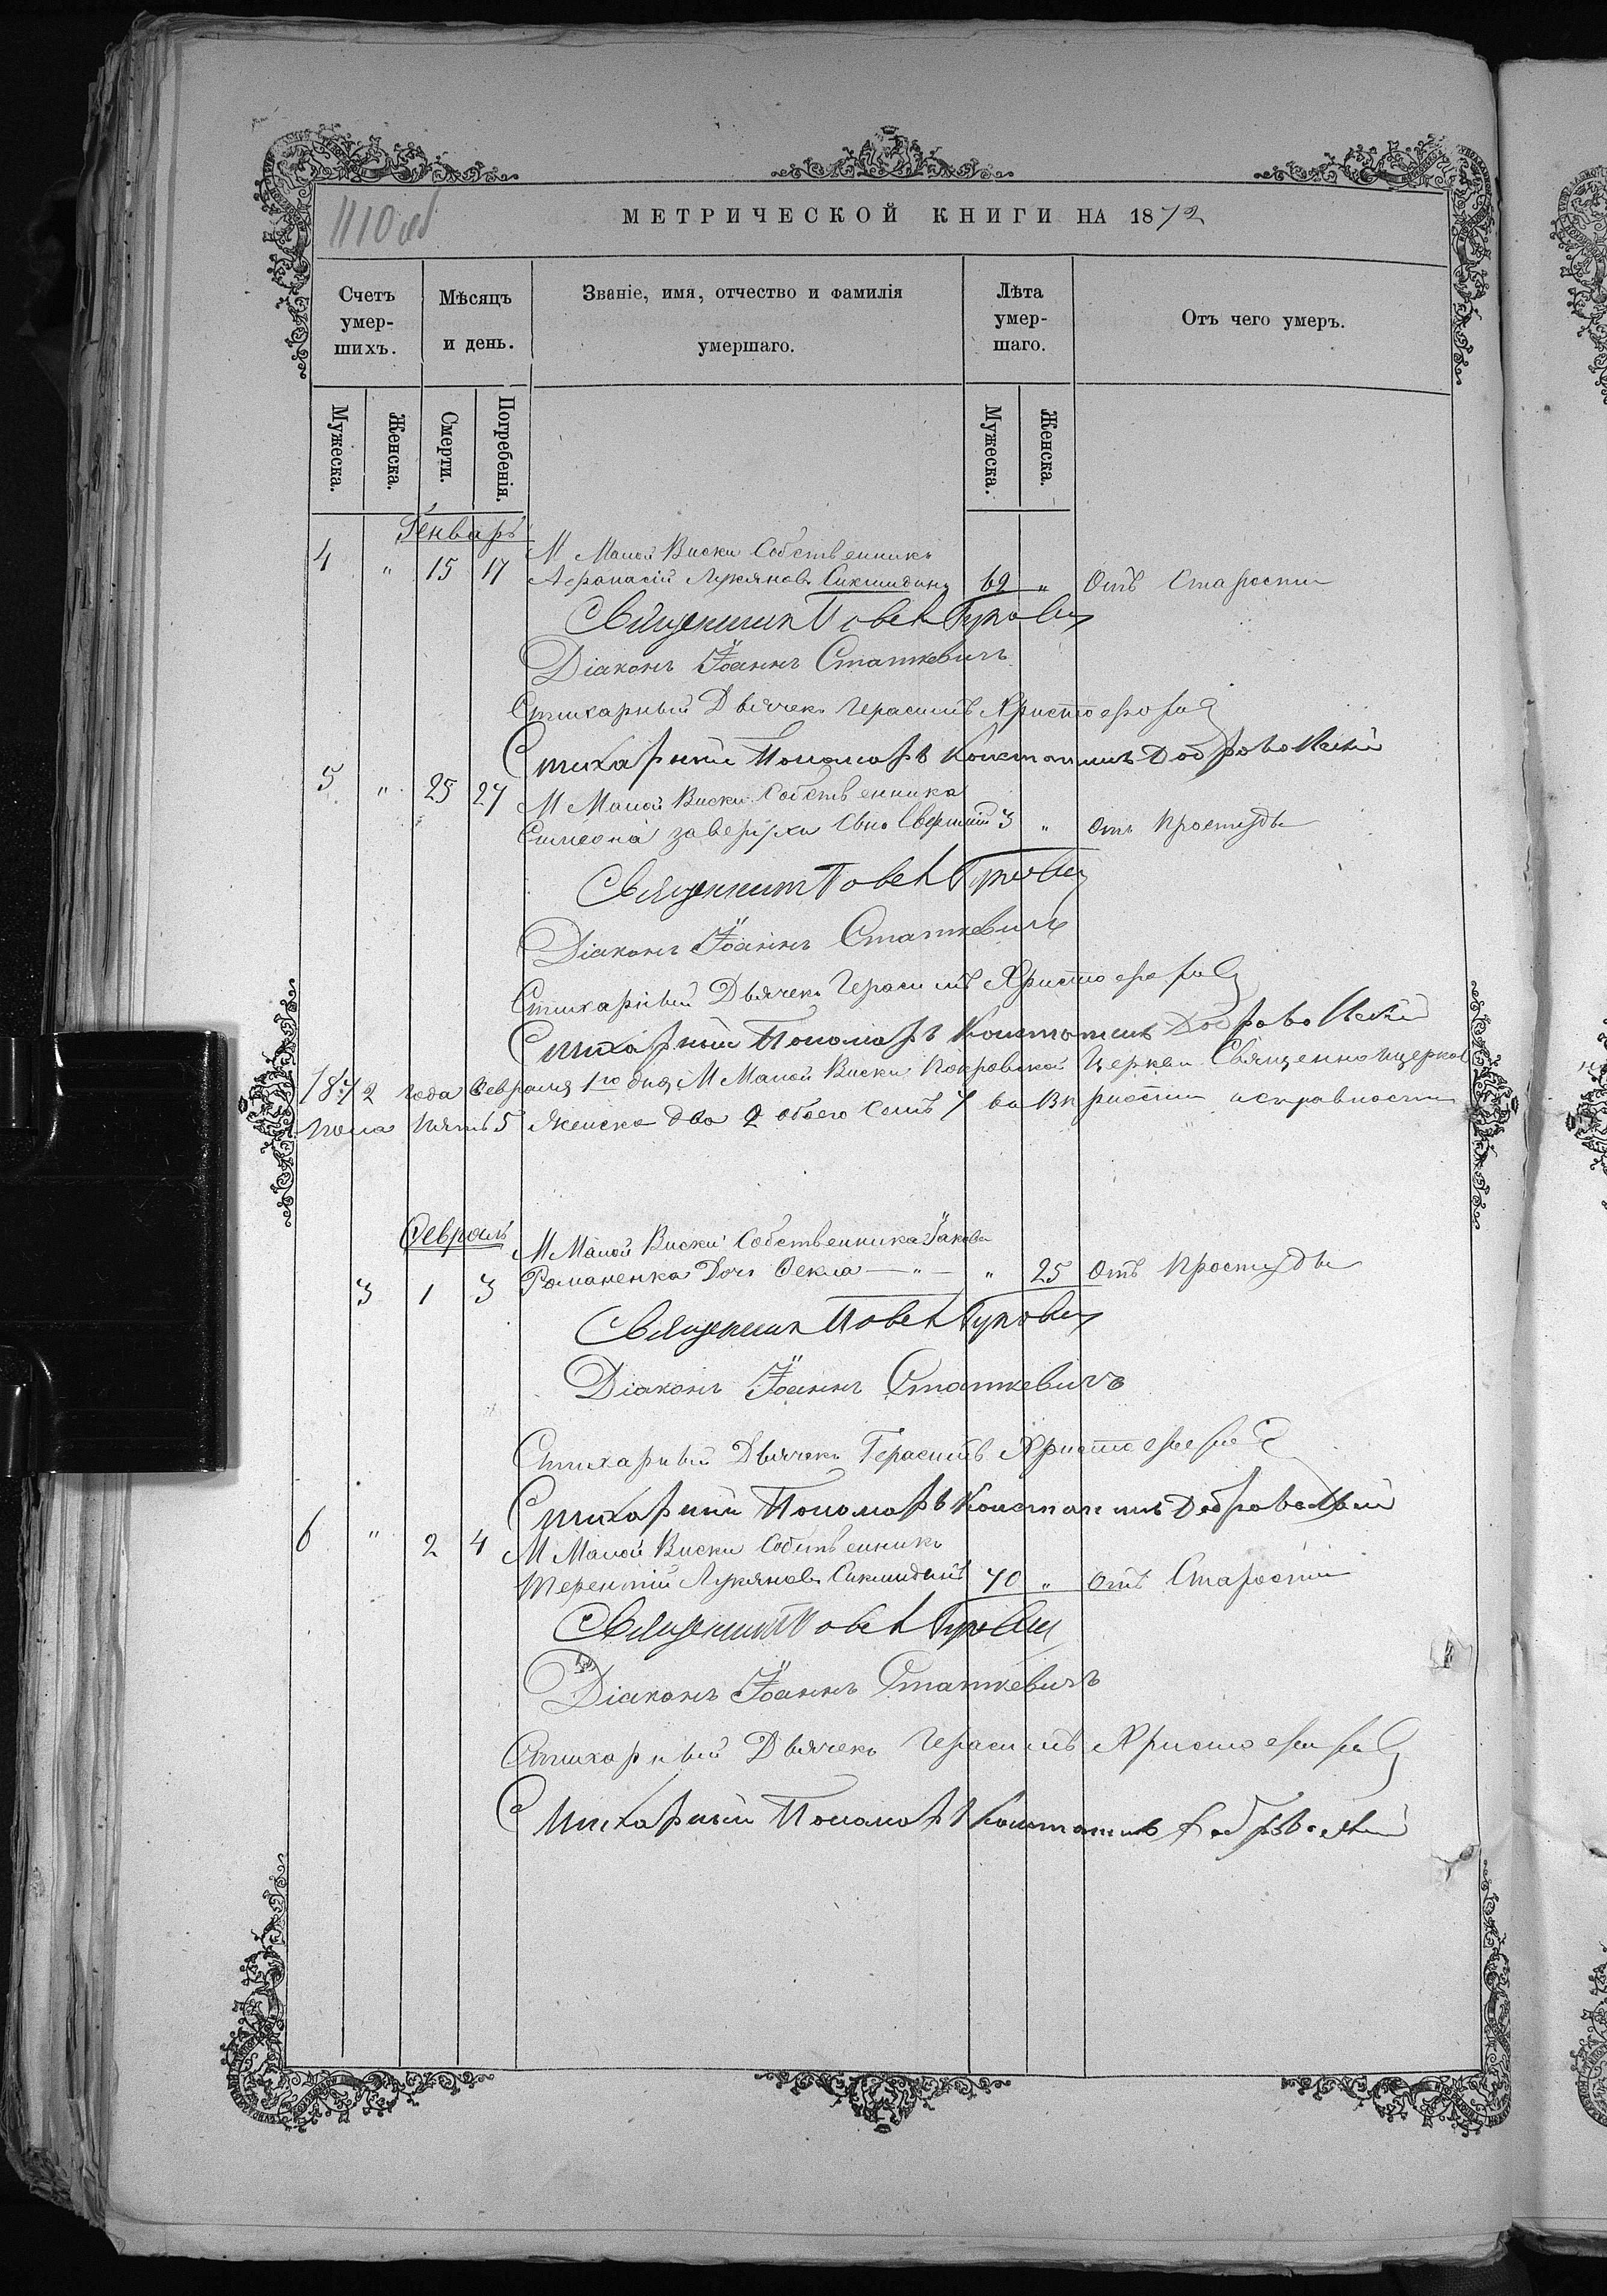 1110 об
МЕТРИЧЕСКОЙ КНИГИ НА 1872
Счетъ умер-шихъ. Мѣсяцъ и день. Званіе, имя, отчество и фамилія умершаго. Лѣта умер-шаго. Отъ чего умеръ.
Мужеска. Женска. Смерти. Погребенія. Мужеска. Женска.
Генварь
М Малой Виски Собственникъ
4 " 15 17 Афонасій Лукяновъ Сикшидинъ 62 " Отъ Старости
Священникъ Павелъ
Діаконъ Іоаннъ Статкевичъ
Стихарный Дьячекъ Герасимъ Христофоров
Стихарный Пономарь Константинъ Добровольскій
5 " 25 27 М Малой Виски Собственника
Симеона заверухи Сынъ 3 " Отъ Простуды
Священникъ Павелъ
Діаконъ Іоаннъ Статкевичъ
Стихарный Дьячекъ Герасимъ Христофоров
Стихарный Пономарь Константинъ Добровольскій
1872 года Февраля 1го дня М Малой Виски Покровской Церкви Священноицерков
пола Пять 5 Женска два 2 обоего Семь 7 исправности
Февраль
М Малой Виски Собственника Іакова
3 1 3 Романенка Дочь Фекла — " — " 25 Отъ Простуды
Священникъ Павелъ
Діаконъ Іоаннъ Статкевичъ
Стихарный Дьячекъ Герасимъ Христофоров
Стихарный Пономарь Константинъ Добровольскій
6 " 2 4 М Малой Виски Собственникъ
Терентій Лукяновъ 70 " Отъ Старости
Священникъ Павелъ
Діаконъ Іоаннъ Статкевичъ
Стихарный Дьячекъ Герасимъ Христофоров
Стихарный Пономарь Константинъ Добровольскій